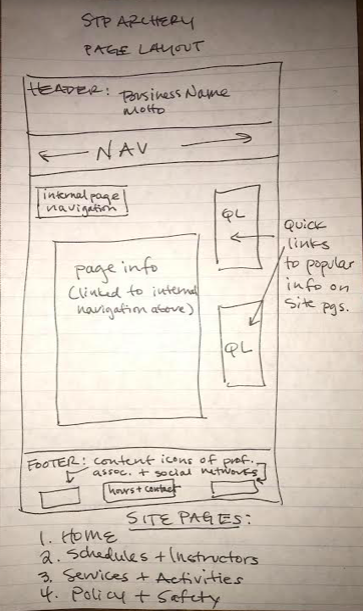 STP ARCHERY
PAGE LAYOUT
HEADER: Business Name
Motto
← NAV →
internal page
navigation
QL
Quick
links
to popular
info on
site pgs.
page info
(linked to internal
navigation above)
QL
FOOTER: content icons of prof.
assoc. + social networks
hours + contact
SITE PAGES:
1. Home
2. Schedules + Instructors
3. Services + Activities
4. Policy + Safety